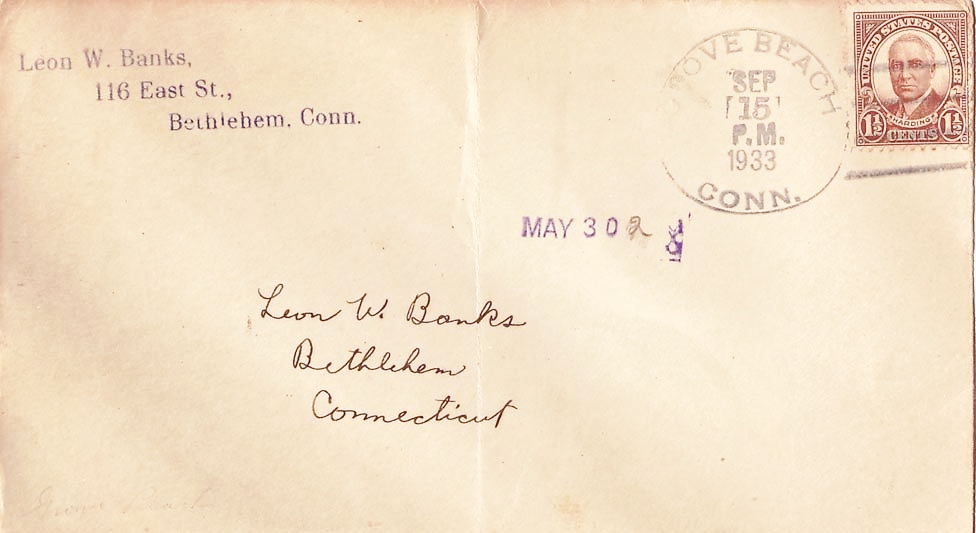 Leon W. Banks,
116 East St.,
Bethlehem, Conn.
GROVE BEACH
SEP
15
P.M.
1933
CONN.
UNITED STATES POSTAGE
HARDING
1½ CENTS 1½
MAY 30 2
Leon W. Banks
Bethlehem
Connecticut
Grove Beach